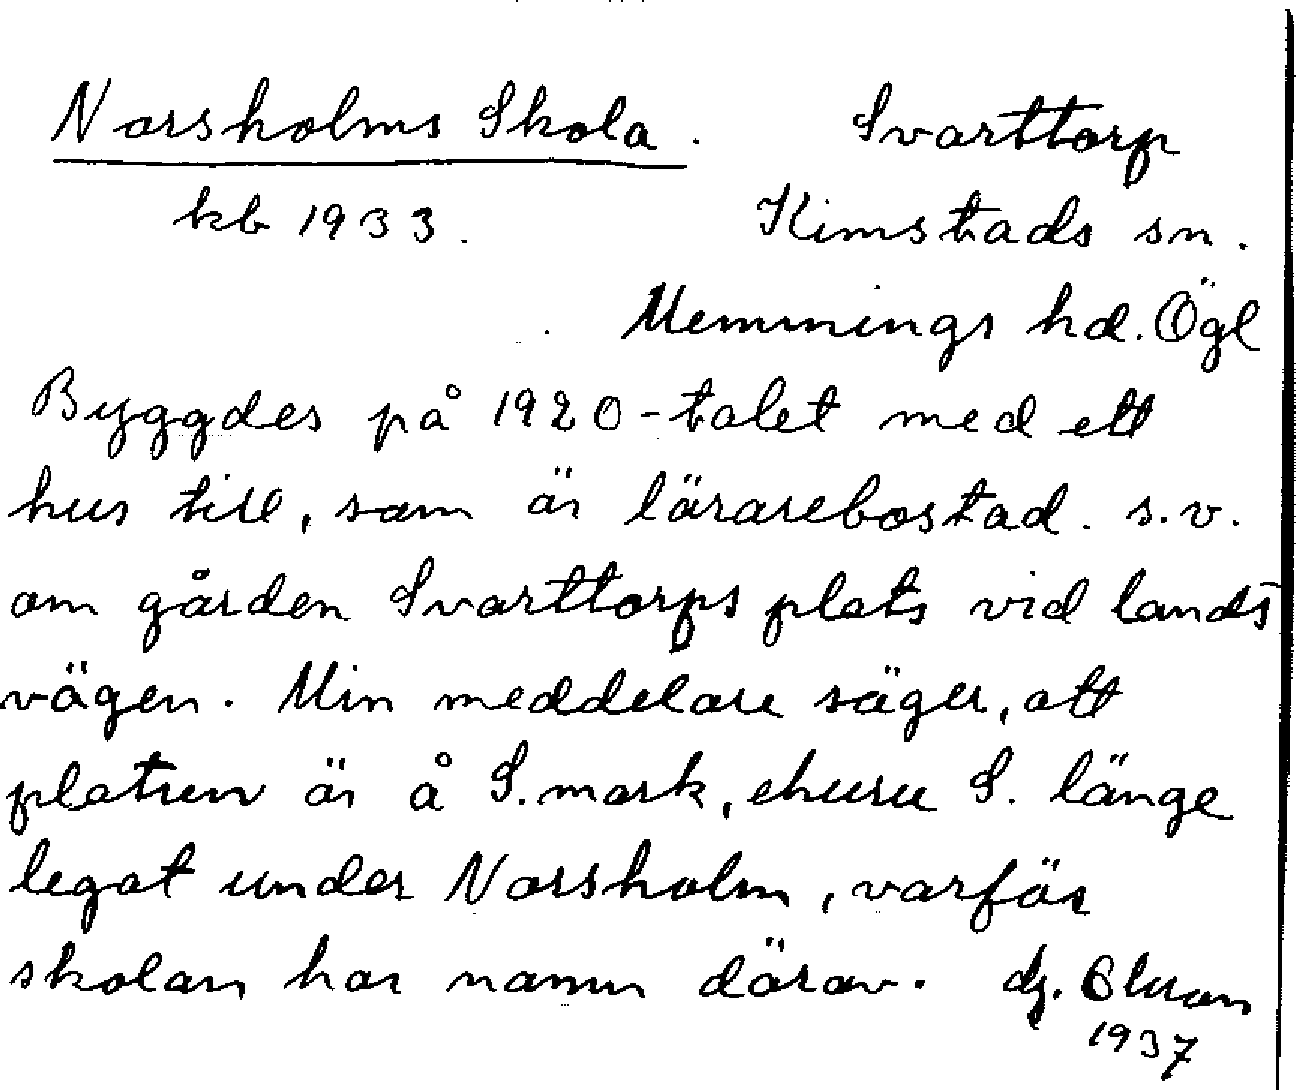 Norsholms Skola. Svarttorp
kb 1933. Kimstads sn.
Memmings hd. Ögl
Byggdes på 1920-talet med ett
hus till, som är lärarebostad. s.v.
om gården Svarttorps plats vid lands-
vägen. Min meddelare säger, att
platsen är å S. mark, ehuru S. länge
legat under Norsholm, varför
skolan har namn därav. dz.
1937